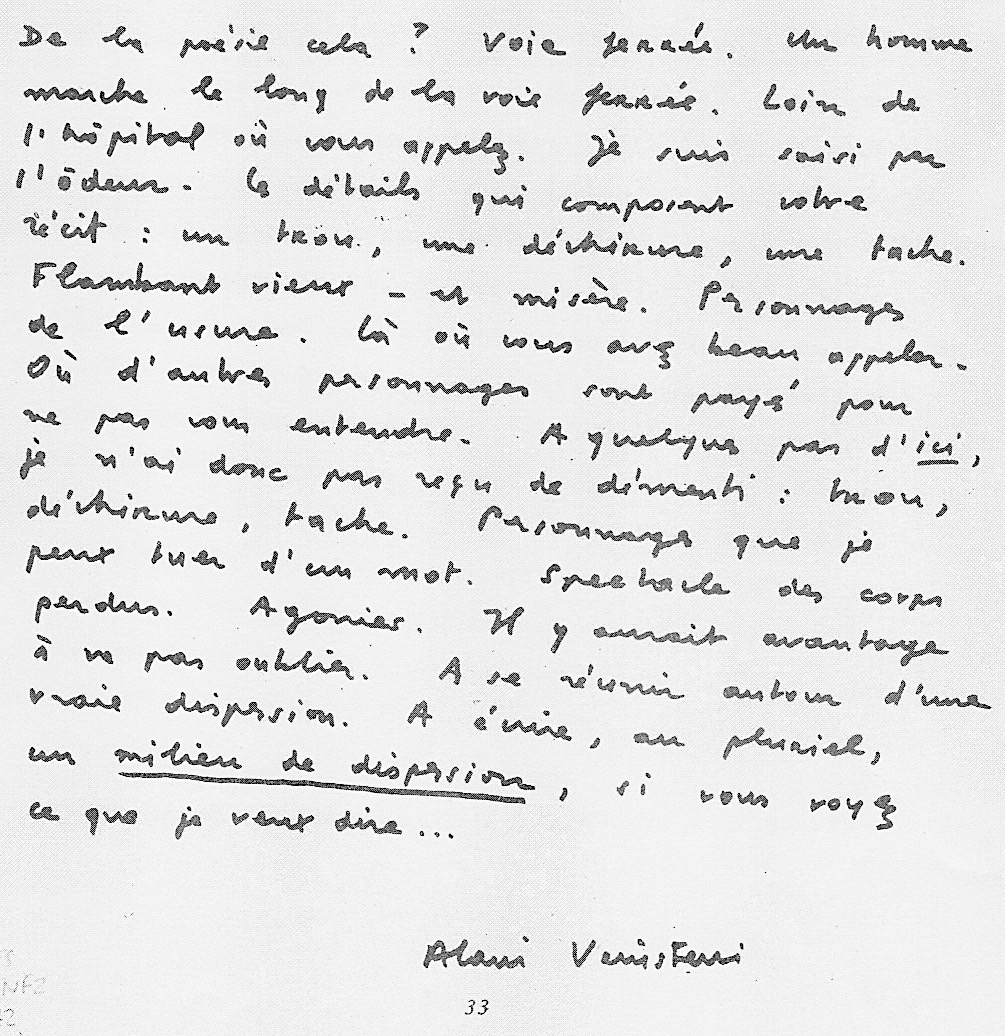 De la poésie cela ? Voie ferrée. Un homme
marche le long de la voie ferrée. Loin de
l'hôpital où vous appelez. Je suis saisi par
l'ôdeur. Ce détails qui composent votre
récit : un trou, une déchirure, une tache.
Flambant vieux – et misère. Personnages
de l'usure. Là où vous avez beau appeler.
Où d'autres personnages sont payé pour
ne pas vous entendre. A quelques pas d'ici,
je n'ai donc pas reçu de démenti : trou,
déchirure, tache. Personnages que je
peux tuer d'un mot. Spectacle des corps
perdus. Agonies. Il y aurait avantage
à ne pas oublier. A se réunir autour d'une
vraie dispersion. A écrire, au pluriel,
un milieu de dispersion, si vous voyez
ce que je veux dire...
Alain
33